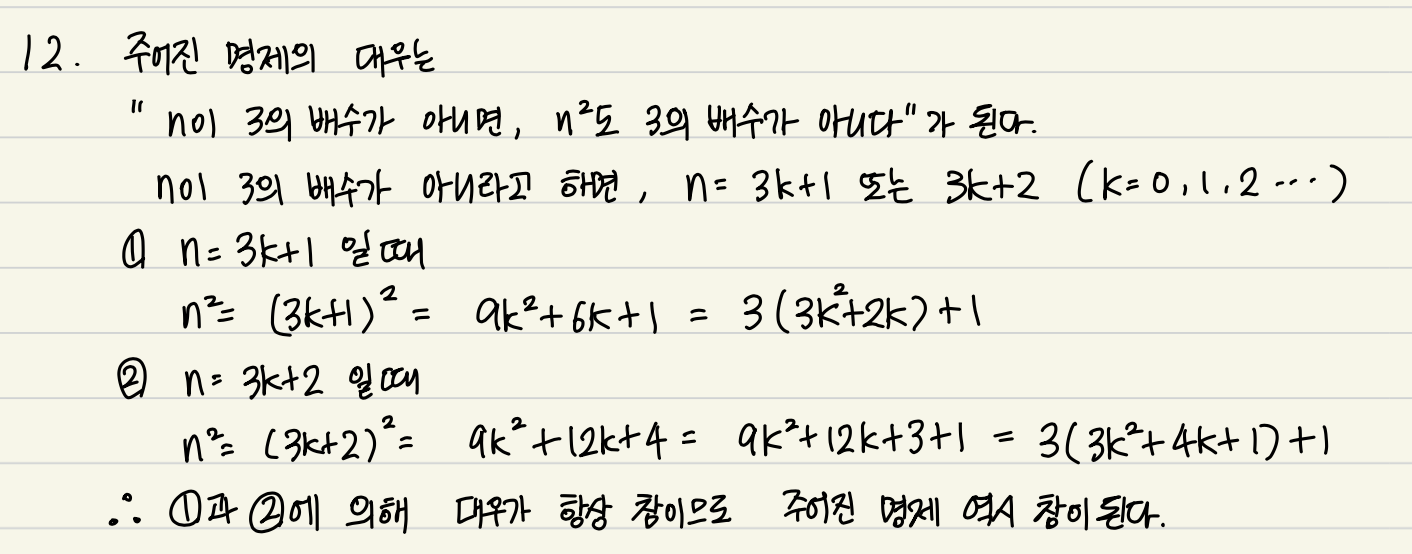 12. 주어진 명제의 대우는
" n이 3의 배수가 아니면, n²도 3의 배수가 아니다"가 된다.
n이 3의 배수가 아니라고 하면, n= 3k+1 또는 3k+2 (k=0,1,2 ···)
① n=3k+1 일 때
n²= (3k+1)² = 9k²+6k+1 = 3(3k²+2k)+1
② n= 3k+2 일 때
n²= (3k+2)² = 9k²+12k+4 = 9k²+12k+3+1 = 3(3k²+4k+1)+1
∴ ①과 ②에 의해 대우가 항상 참이므로 주어진 명제 역시 참이 된다.